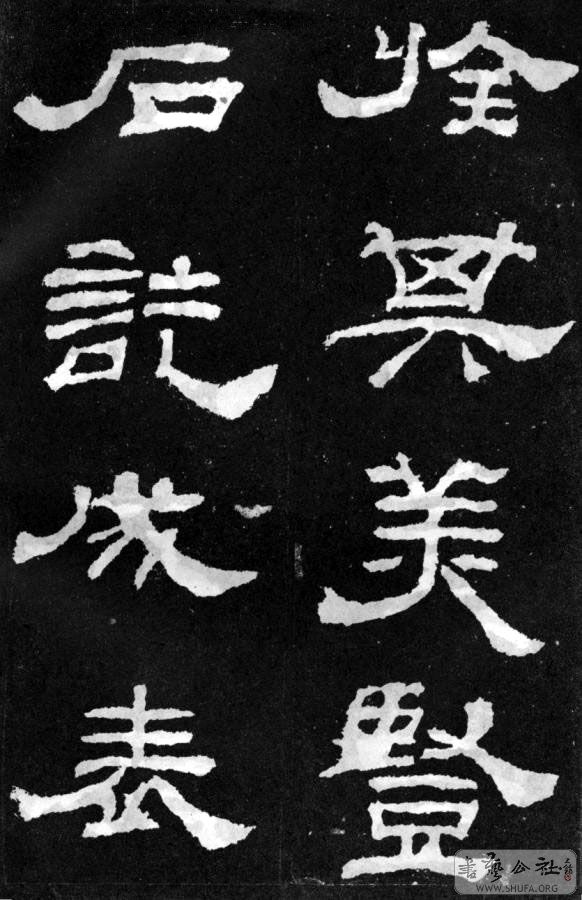 其美豎
石訖成表
書藝公社
WWW.SHUFA.ORG